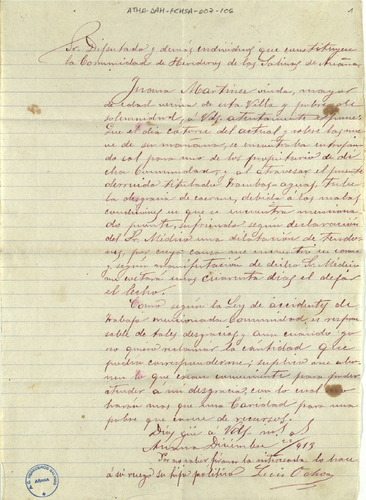 ATHA-DAH-FCHSA-007-106
1
Sr. Diputado y demás individuos que constituyen
la Comunidad de Herederos de las Salinas de Añana
Juana Martínez viuda, mayor
de edad vecina de esta Villa y pobre de
solemnidad, a Vds. atentamente expone:
Que el día catorce del actual y sobre las nue-
ve de su mañana, se encontraba entrojando
sal para uno de los propietarios de di-
cha Comunidad, y al atravesar el puente
derruido titulado Trambas-aguas, tube
la desgracia de caerme, debido a las malas
condiciones en que se encuentra menciona-
do puente, sufriendo según declaración
del Sr. Médico una dilatación de tendo-
nes, por cuya causa me encuentro en cama
y según manifestación de dicho Sr. Médico
me costará unos cuarenta días el dejar
el lecho.
Como según la Ley de accidentes de
trabajo mencionada Comunidad es respon-
sable de tales desgracias y aun cuando yo
no quiero reclamar la cantidad que
pueda corresponderme; suplico me abo-
nen lo que crean conveniente para poder
atender a mi desgracia, con lo cual ob-
rarán mas que una Caridad para una
pobre que carece de recursos.
Dios gue a Vds. m. a.
Añana Diciembre 1913
Por no saber firmar la interesada lo hace
a su ruego su hijo político Luis Ochoa
ATHA